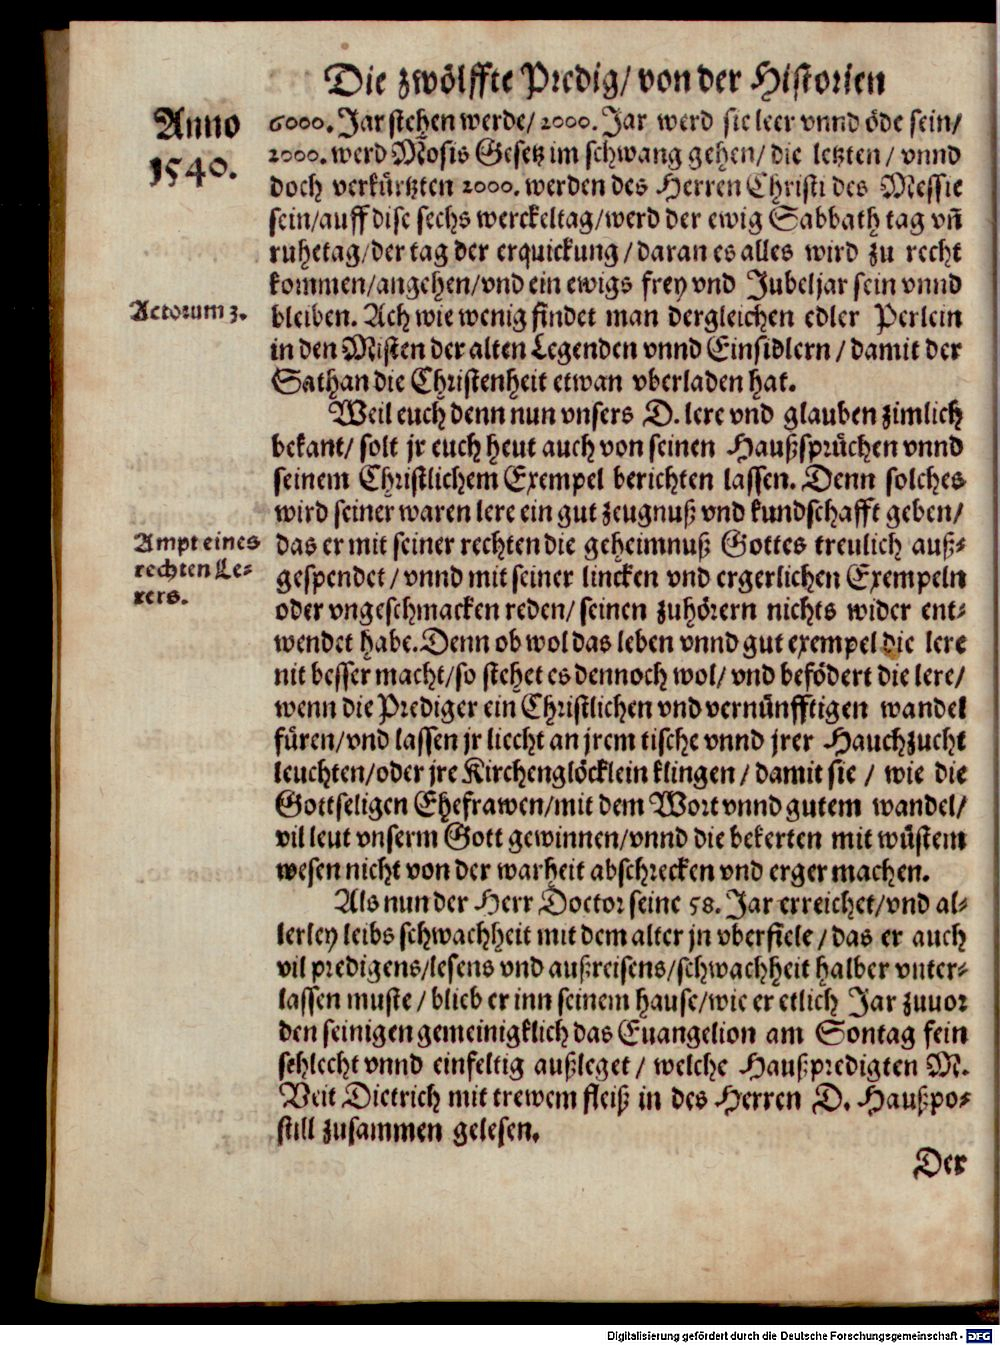 Die zwölffte Predig/ von der Historien
Anno
1540.
6000. Jar stehen werde/ 2000. Jar werd sie leer vnnd öde sein/
2000. werd Mosis Gesetz im schwang gehen/ die letzten/ vnnd
doch verkürtzten 2000. werden des Herren Christi des Messie
sein/auff dise sechs werckeltag/werd der ewig Sabbath tag vn̄
ruhetag/der tag der erquickung/daran es alles wird zu recht
kommen/angehen/vnd ein ewigs frey vnd Jubeljar sein vnnd
Actorum 3.
bleiben. Ach wie wenig findet man dergleichen edler Perlein
in den Misten der alten Legenden vnnd Einsidlern/ damit der
Sathan die Christenheit etwan vberladen hat.
Weil euch denn nun vnsers D. lere vnd glauben zimlich
bekant/ solt jr euch heut auch von seinen Haußsprüchen vnnd
seinem Christlichem Exempel berichten lassen. Denn solches
wird seiner waren lere ein gut zeugnuß vnd kundschafft geben/
Ampt eines
rechten Le-
rers.
das er mit seiner rechten die geheimnuß Gottes treulich auß-
gespendet/ vnnd mit seiner lincken vnd ergerlichen Exempeln
oder vngeschmacken reden/ seinen zuhörern nichts wider ent-
wendet habe. Denn ob wol das leben vnnd gut exempel die lere
nit besser macht/so stehet es dennoch wol/ vnd befödert die lere/
wenn die Prediger ein Christlichen vnd vernünfftigen wandel
füren/vnd lassen jr liecht an jrem tische vnnd jrer Hauchzucht
leuchten/oder jre Kirchenglöcklein klingen/ damit sie/ wie die
Gottseligen Ehefrawen/mit dem Wort vnnd gutem wandel/
vil leut vnserm Gott gewinnen/vnnd die bekerten mit wüstem
wesen nicht von der warheit abschrecken vnd erger machen.
Als nun der Herr Doctor seine 58. Jar erreichet/vnd al-
lerley leibs schwachheit mit dem alter jn vberfiele/ das er auch
vil predigens/lesens vnd außreisens/schwachheit halber vnter-
lassen muste/ blieb er inn seinem hause/wie er etlich Jar zuuor
den seinigen gemeinigklich das Euangelion am Sontag fein
schlecht vnnd einfeltig außleget/ welche Haußpredigten M.
Veit Dietrich mit trewem fleiß in des Herren D. Haußpo-
still zusammen gelesen.
Der
Digitalisierung gefördert durch die Deutsche Forschungsgemeinschaft - DFG